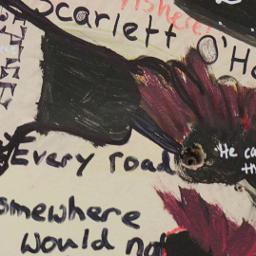 Scarlett O'Ha
Every road
He ca
th
omewhere
would not